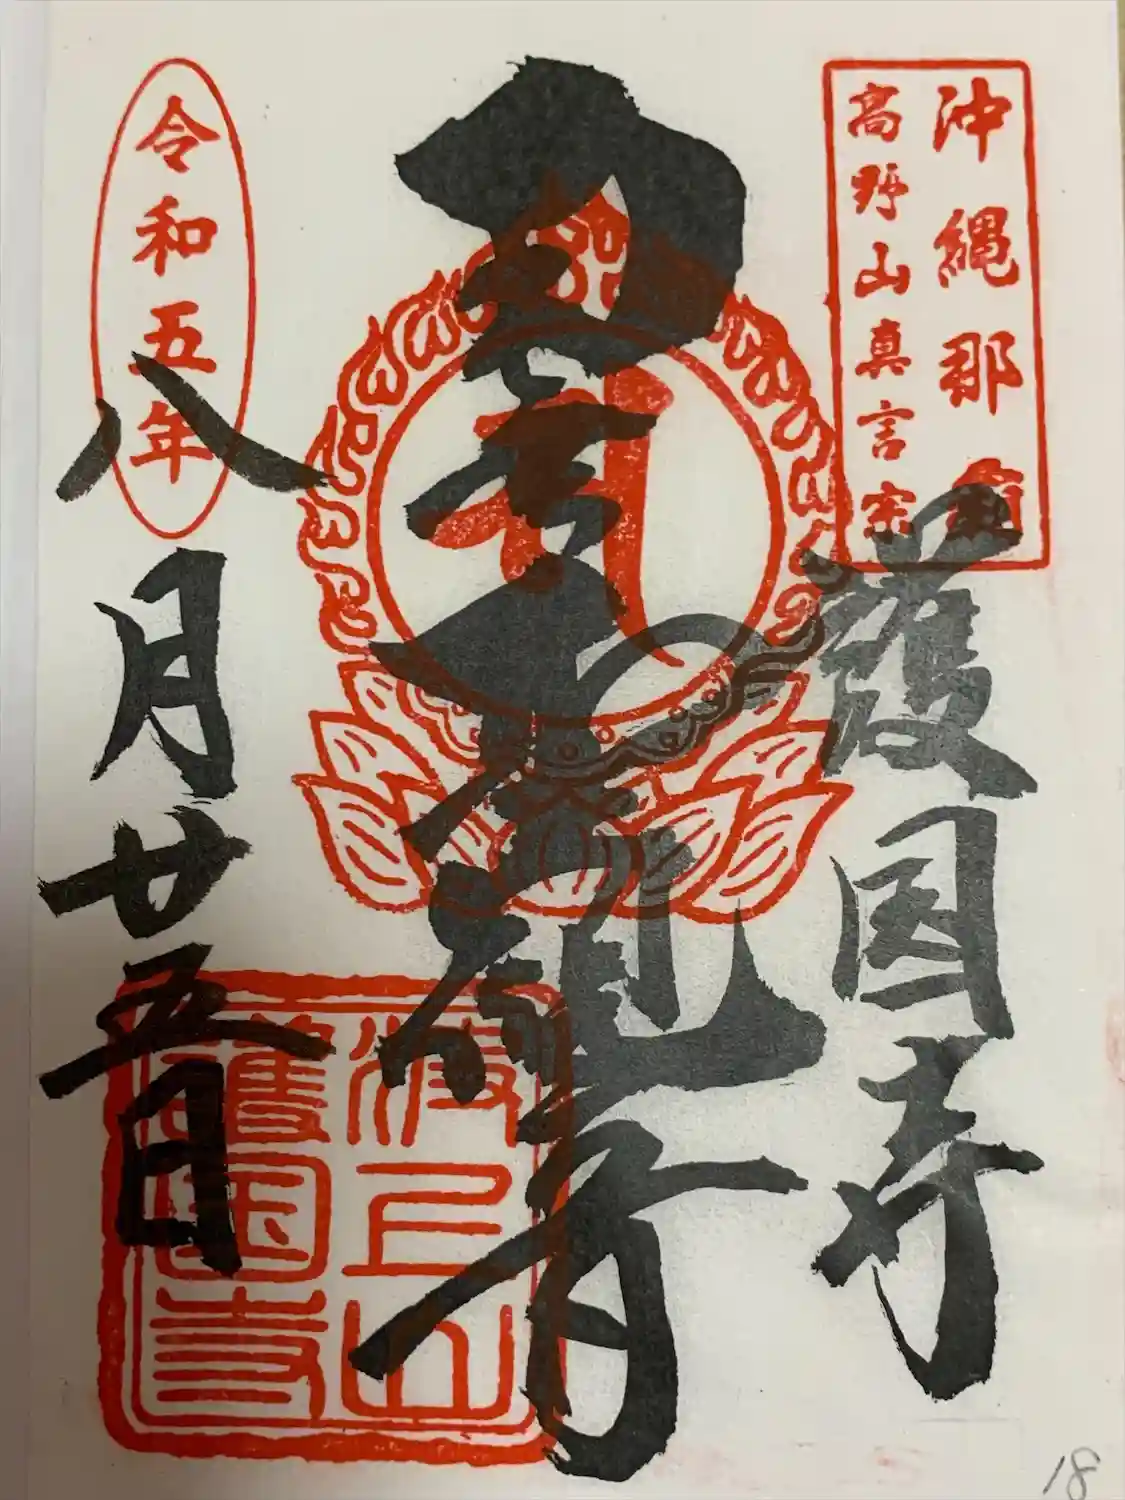 沖縄那覇
高野山真言宗
護国寺
聖観音
令和五年
八月廿五日
波上山
護国寺
18